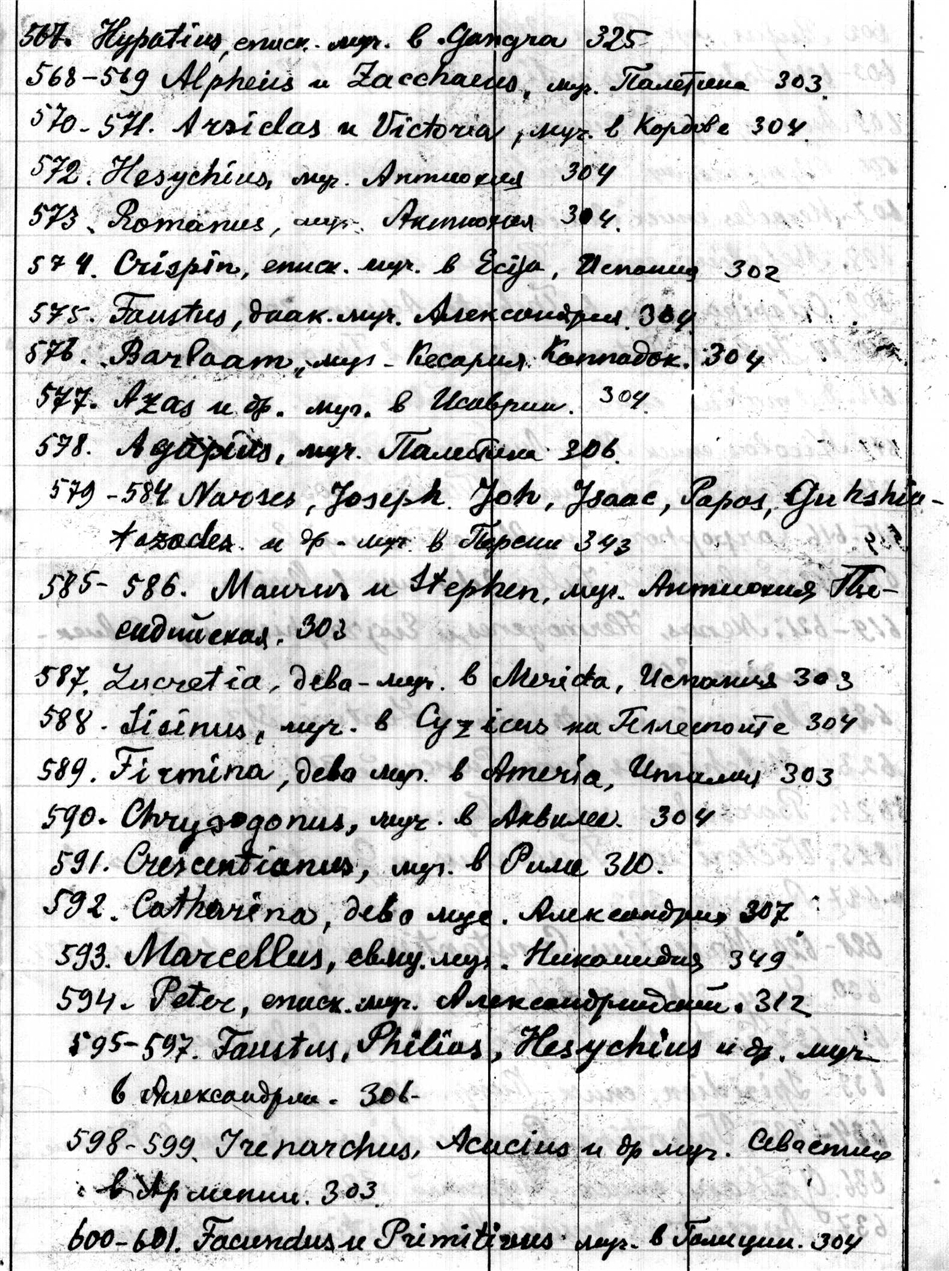 567. Hypatius, еписк. муч. в Gangra 325
568-569 Alpheus и Zacchaeus, муч. Палетина 303.
570-571. Arsiclas и Victoria, муч. в Кордове 304
572. Hesychius, муч. Антиохия 304
573. Romanus, муч. Антиохия 304.
574. Crispin, еписк. муч. в Ecija, Испания 302
575. Faustus, диак. муч. Александрия. 304
576. Barlaam, муч - Кесария Каппадок. 304
577. Azas и др. муч. в Исаврии. 304
578. Agapius, муч. Палетина 306.
579-584 Narses, Joseph. Joh, Isaac, Papas, Guhshia-
tazades и др - муч. в Персии 343
585-586. Maurus и Stephen, муч. Антиохия Пи-
сидийская. 303
587. Lucretia, дева-муч. в Merida, Испания 303
588. Sisinus, муч. в Cyzicus на Геллеспонте 304
589. Firmina, дева муч. в Ameria, Италия 303
590. Chrysogonus, муч. в Аквилее. 304
591. Crescentianus, муч. в Риме 310.
592. Catharina, дева муч. Александрия 307
593. Marcellus, свщ. муч. Никомидия 349
594. Peter, еписк. муч. Александрийский. 312
595-597. Faustus, Philias, Hesychius и др. муч
в Александрии. 306-
598-599. Irenarchus, Acacius и др муч. Севастия
в Армении. 303
600-601. Facundus и Primitivus муч. в Галиции. 304